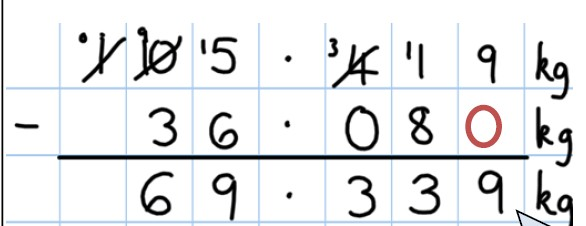 105.419 kg
- 36.080 kg
69.339 kg